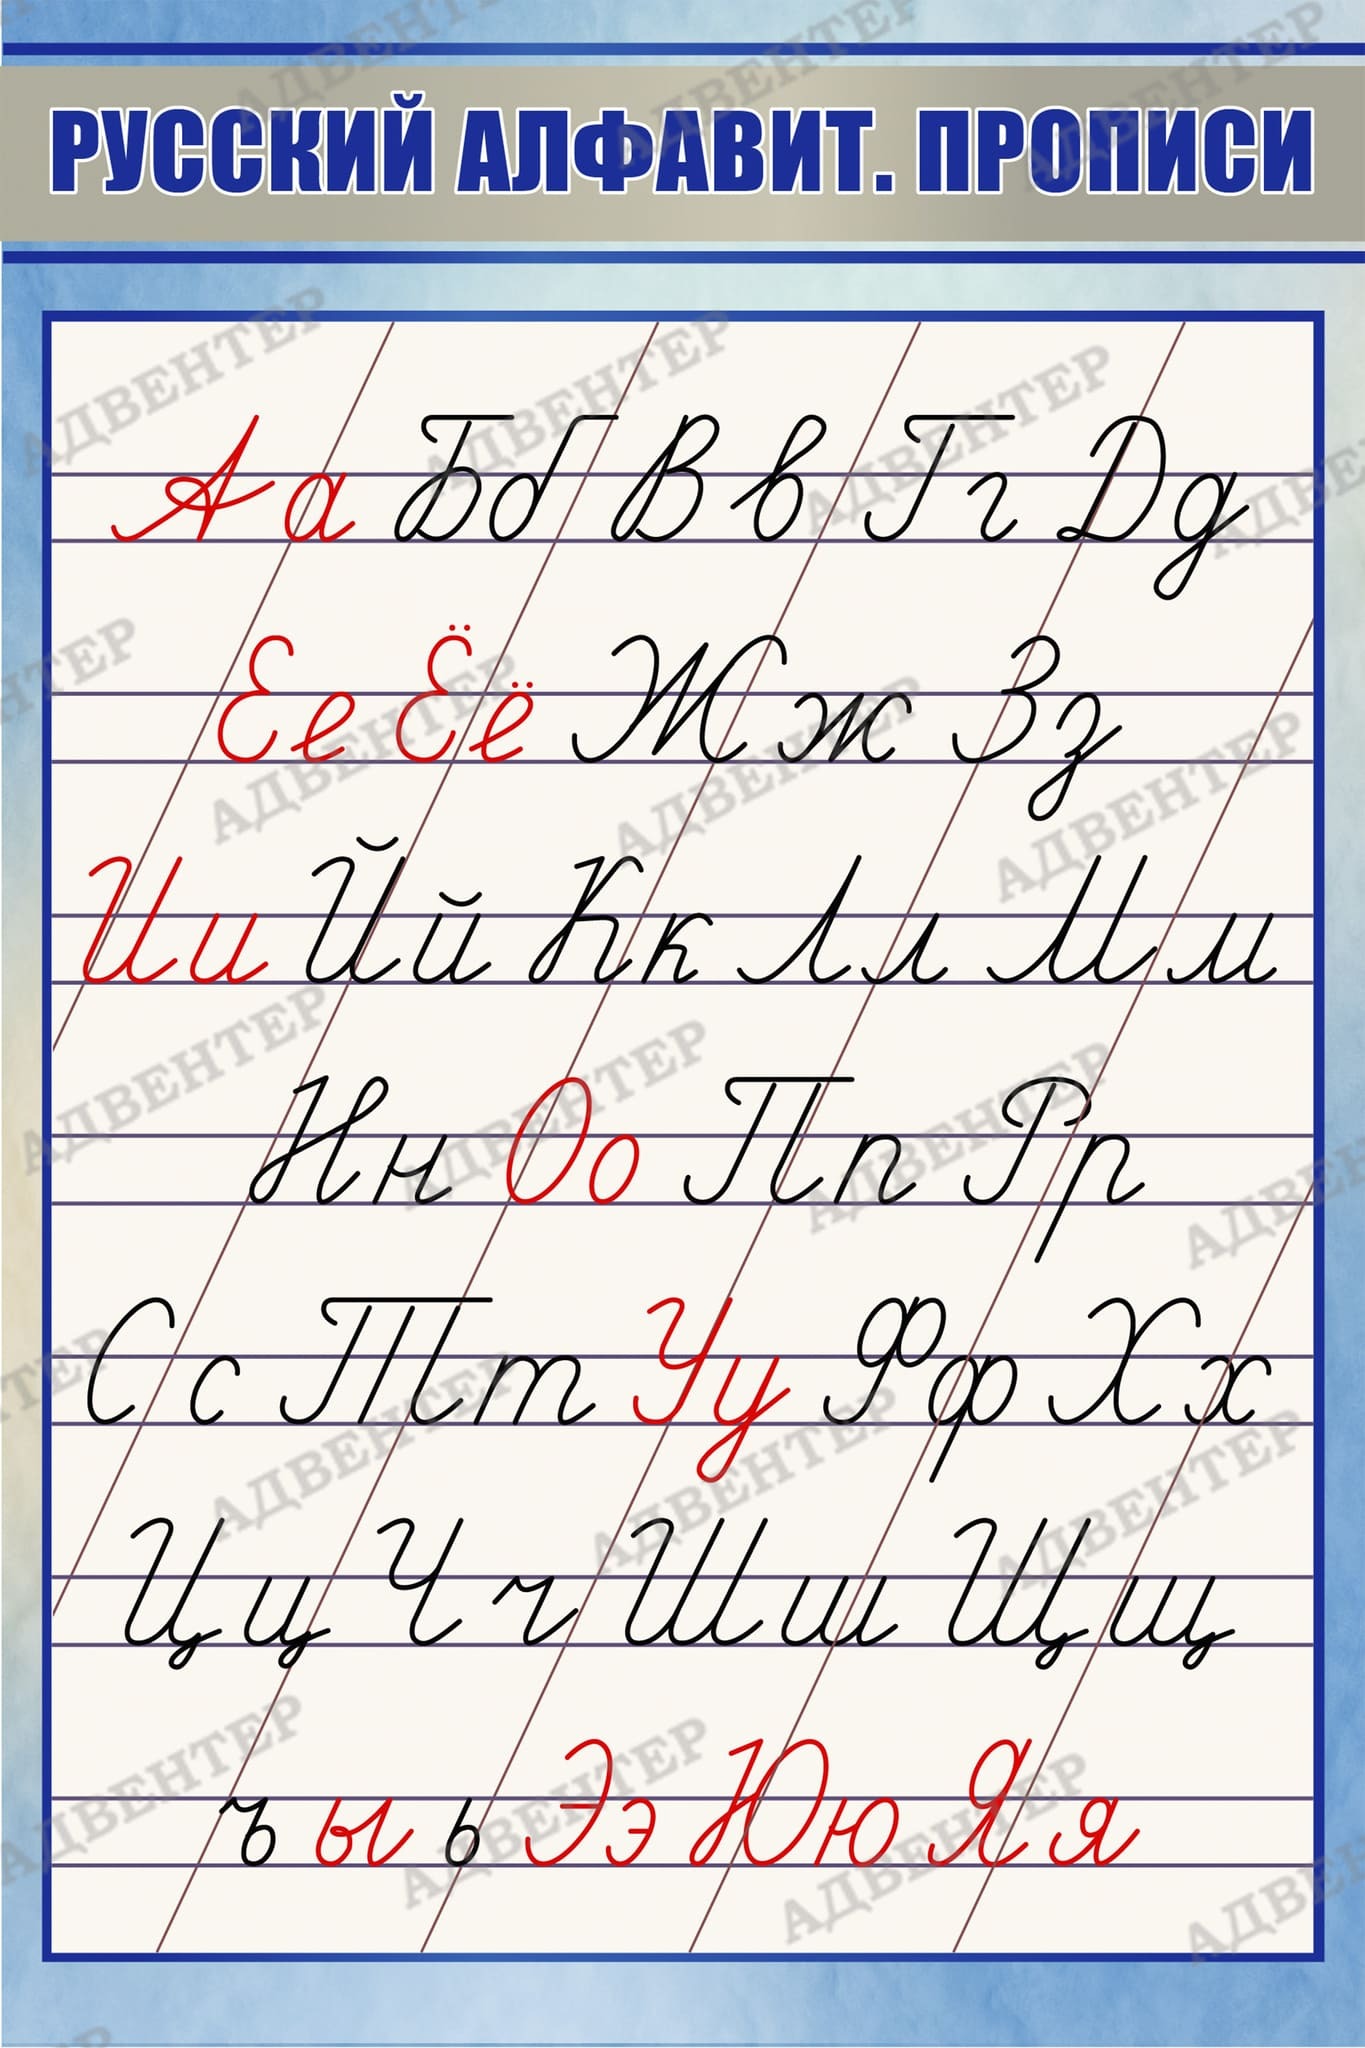 РУССКИЙ АЛФАВИТ. ПРОПИСИ
Аа Бб Вв Гг Дд
Ее Ёё Жж Зз
Ии Йй Кк Лл Мм
Нн Оо Пп Рр
Сс Тт Уу Фф Хх
Цц Чч Шш Щщ
ъ ы ь Ээ Юю Яя
АДВЕНТЕР